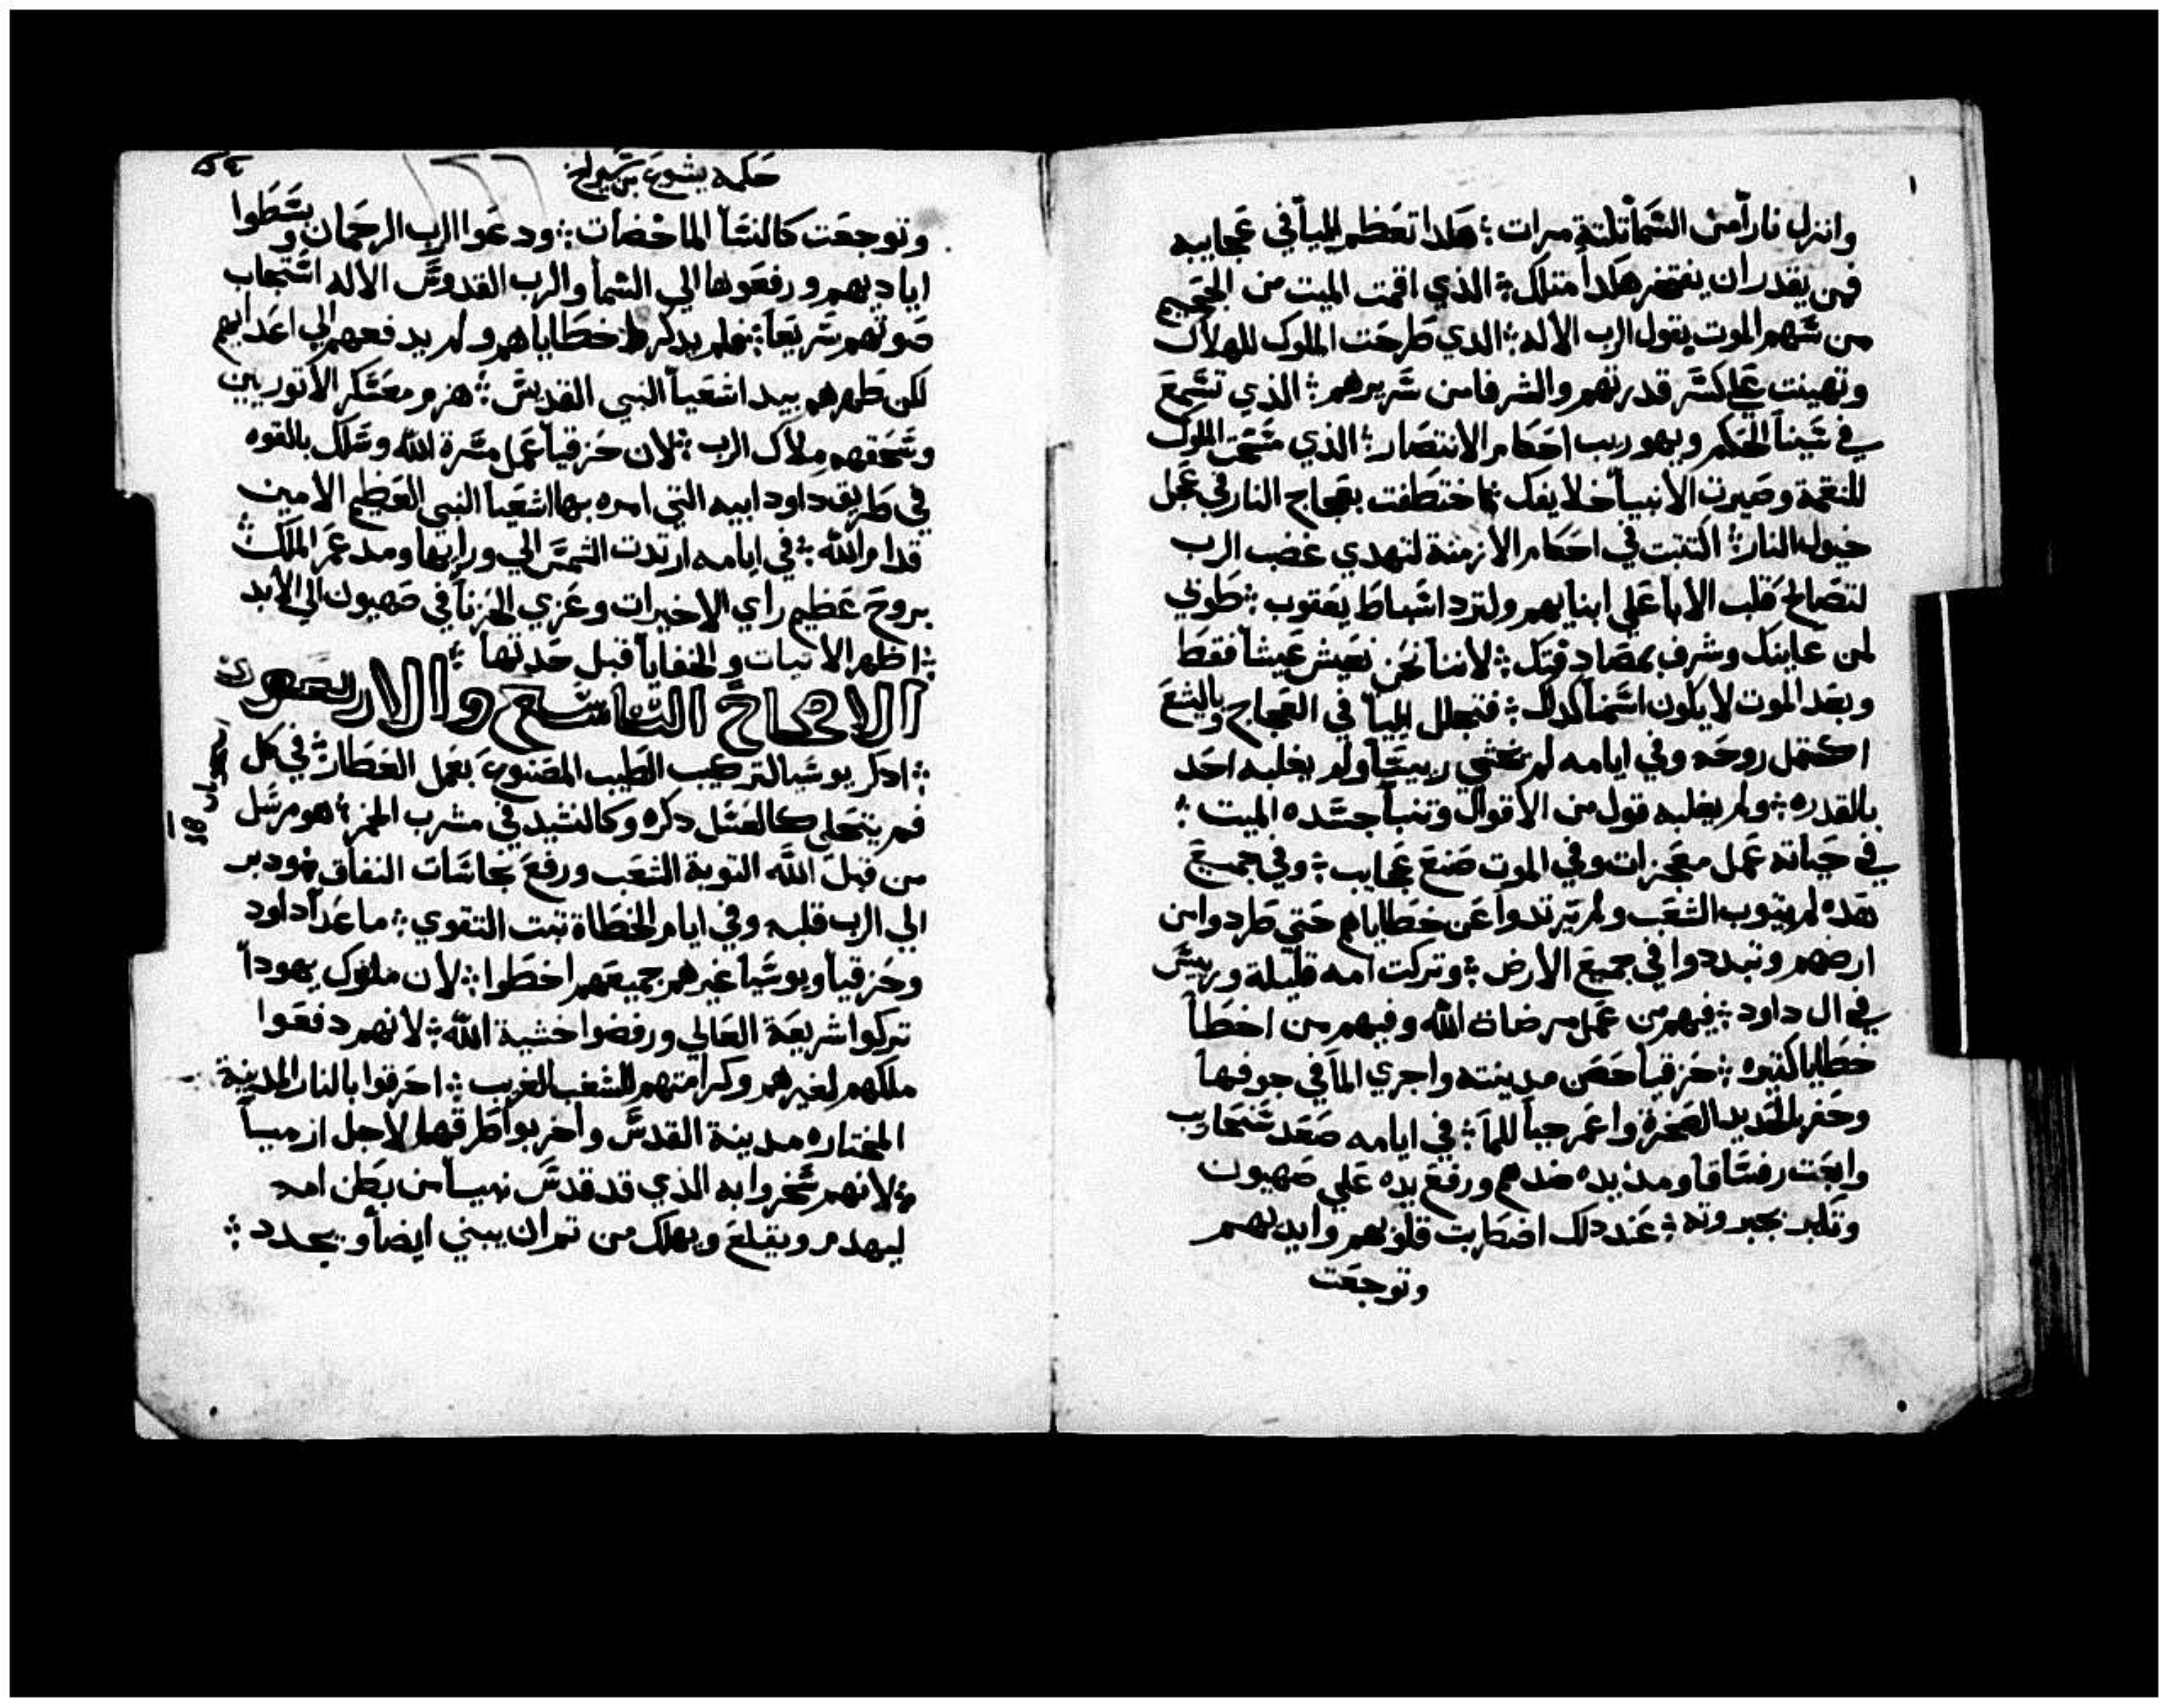 وانزل ناراً من السَّما تلتة مرات ؛ هكدا تعَظم ايليا في عَجايبه
فمن يقدر ان يفتخر هكدا متلك ؛ الذي اقمت الميت من الجحيم
من سَهم الموت بقول الرب الاله ؛ الدي طرحَت الملوك للهلاك
وتهينت عَلي كسَر قدرتهم والشرفا من سَريرهم ؛ الذي تسَمعَ
في سَينا الحَكم وبهوريب احَكام الانتصَار ؛ الذي مسَحَت الملوك
للنقمة وصَيرت الانبيا خلايفك ؛ اختطَفت بعَجاج النار في عَجل
خيول النار ؛ اكتتبت في احَكام الازمنة لتهدي غضب الرب
لتصَالحَ قلب الابا عَلي ابنايهم ولترد اسَباطَ يعَقوب ؛ طَوبي
لمن عَاينك وشرف بمصَادقتك ؛ لاننا نحَن نعَيش عَيشاً فقطَ
وبعَد الموت لا يكون اسَمنا كدلك ؛ فتجلل ايليا في العَجاج وباليشعَ
اكتمل روحَه وفي ايامه لم يخشي رييسَاً ولم يغلبه احَد
بالقدره ؛ ولم يغلبه قول من الاقوال وتنبا جسَده الميت ؛
في حَياته عَمل معَجزات وفي الموت صَنعَ عَجايب ؛ وفي جميعَ
هَده لم يتوب الشعَب ولم يرتدوا عَن خطَاياهم حَتي طَردوا من
ارضهم وتبددوا في جميعَ الارض ؛ وتركت امه قليلة ورييسَ
في ال داود ؛ فيهم من عَمل مرضاة الله وفيهم من اخطَا
خطَايا كتيره ؛ حَزقيا حَصَن مدينته واجري الما في جوفها
وحَفر بالحَديد الصَخرة واعَمر جباً للما ؛ في ايامه صَعَد سَنحَاريب
وابعَت رفسَاقا ومد يده ضدهم ورفعَ يده عَلي صَهيون
وتكبر بجبروته ؛ عَند دلك اضطَربت قلوبهم وايديهم
وتوجعَت
حَكمه يشوعَ بن سَيراخ
وتوجعَت كالنسَا الماخضات ؛ ودعَوا الرب الرحَمان وبسَطَوا
اياديهم ورفعَوها الي السَما والرب القدوسَ الاله اسَتجاب
صَوتهم سَريعَاً ؛ فلم يدكر خطَاياهم ولم يدفعهم الي اعَدايهم
لكن طَهرهم بيد اشعَيا النبي القديسَ ؛ هزم معَسَكر الاتوريين
وسَحَقهم ملاك الرب ؛ لان حَزقيا عَمل مسَرة الله وسَلك بالقوه
في طَريق داود ابيه التي امره بها اشعَيا النبي العَظيم الامين
قدام الله ؛ في ايامه ارتدت الشمسَ الي ورايها ومد عَمر الملك ؛
بروحَ عَظيم راي الاخيرات وعَزي الحَزنا في صَهيون الي الابد
؛ اظهر الاتيات والخفايا قبل حَدتها ؛
الاصحاحَ التاسَع والاربعون
؛ ادكر يوشيا لتركيب الطَيب المصَنوعَ بعَمل العَطَار ؛ في كل
فم يتحَلي كالعَسَل دكره وكالنشيد في مشرب الخمر ؛ هو مرسَل
من قبل الله التوبة الشعَب ورفعَ نجاسَات النفاق ؛ ودبر
الي الرب قلبه وفي ايام الخطَاة تبت التقوي ؛ ما عَدا داود
وحَزقيا ويوشيا غيرهم جميعَهم اخطَوا ؛ لان ملوك يهودا
تركوا شريعَة العَالي ورفضوا خشية الله ؛ لانهم دفعَوا
ملكهم لغيرهم وكرامتهم للشعَب الغريب ؛ احَرقوا بالنار المدينة
المختاره مدينة القدسَ واخربوا طَرقها لاجل ارميا
؛ لانهم سَخروا به الذي قد قدسَ نبياً من بطَن امه
ليهدم ويقلعَ ويهلك من تم ان يبني ايضاً ويجدد ؛